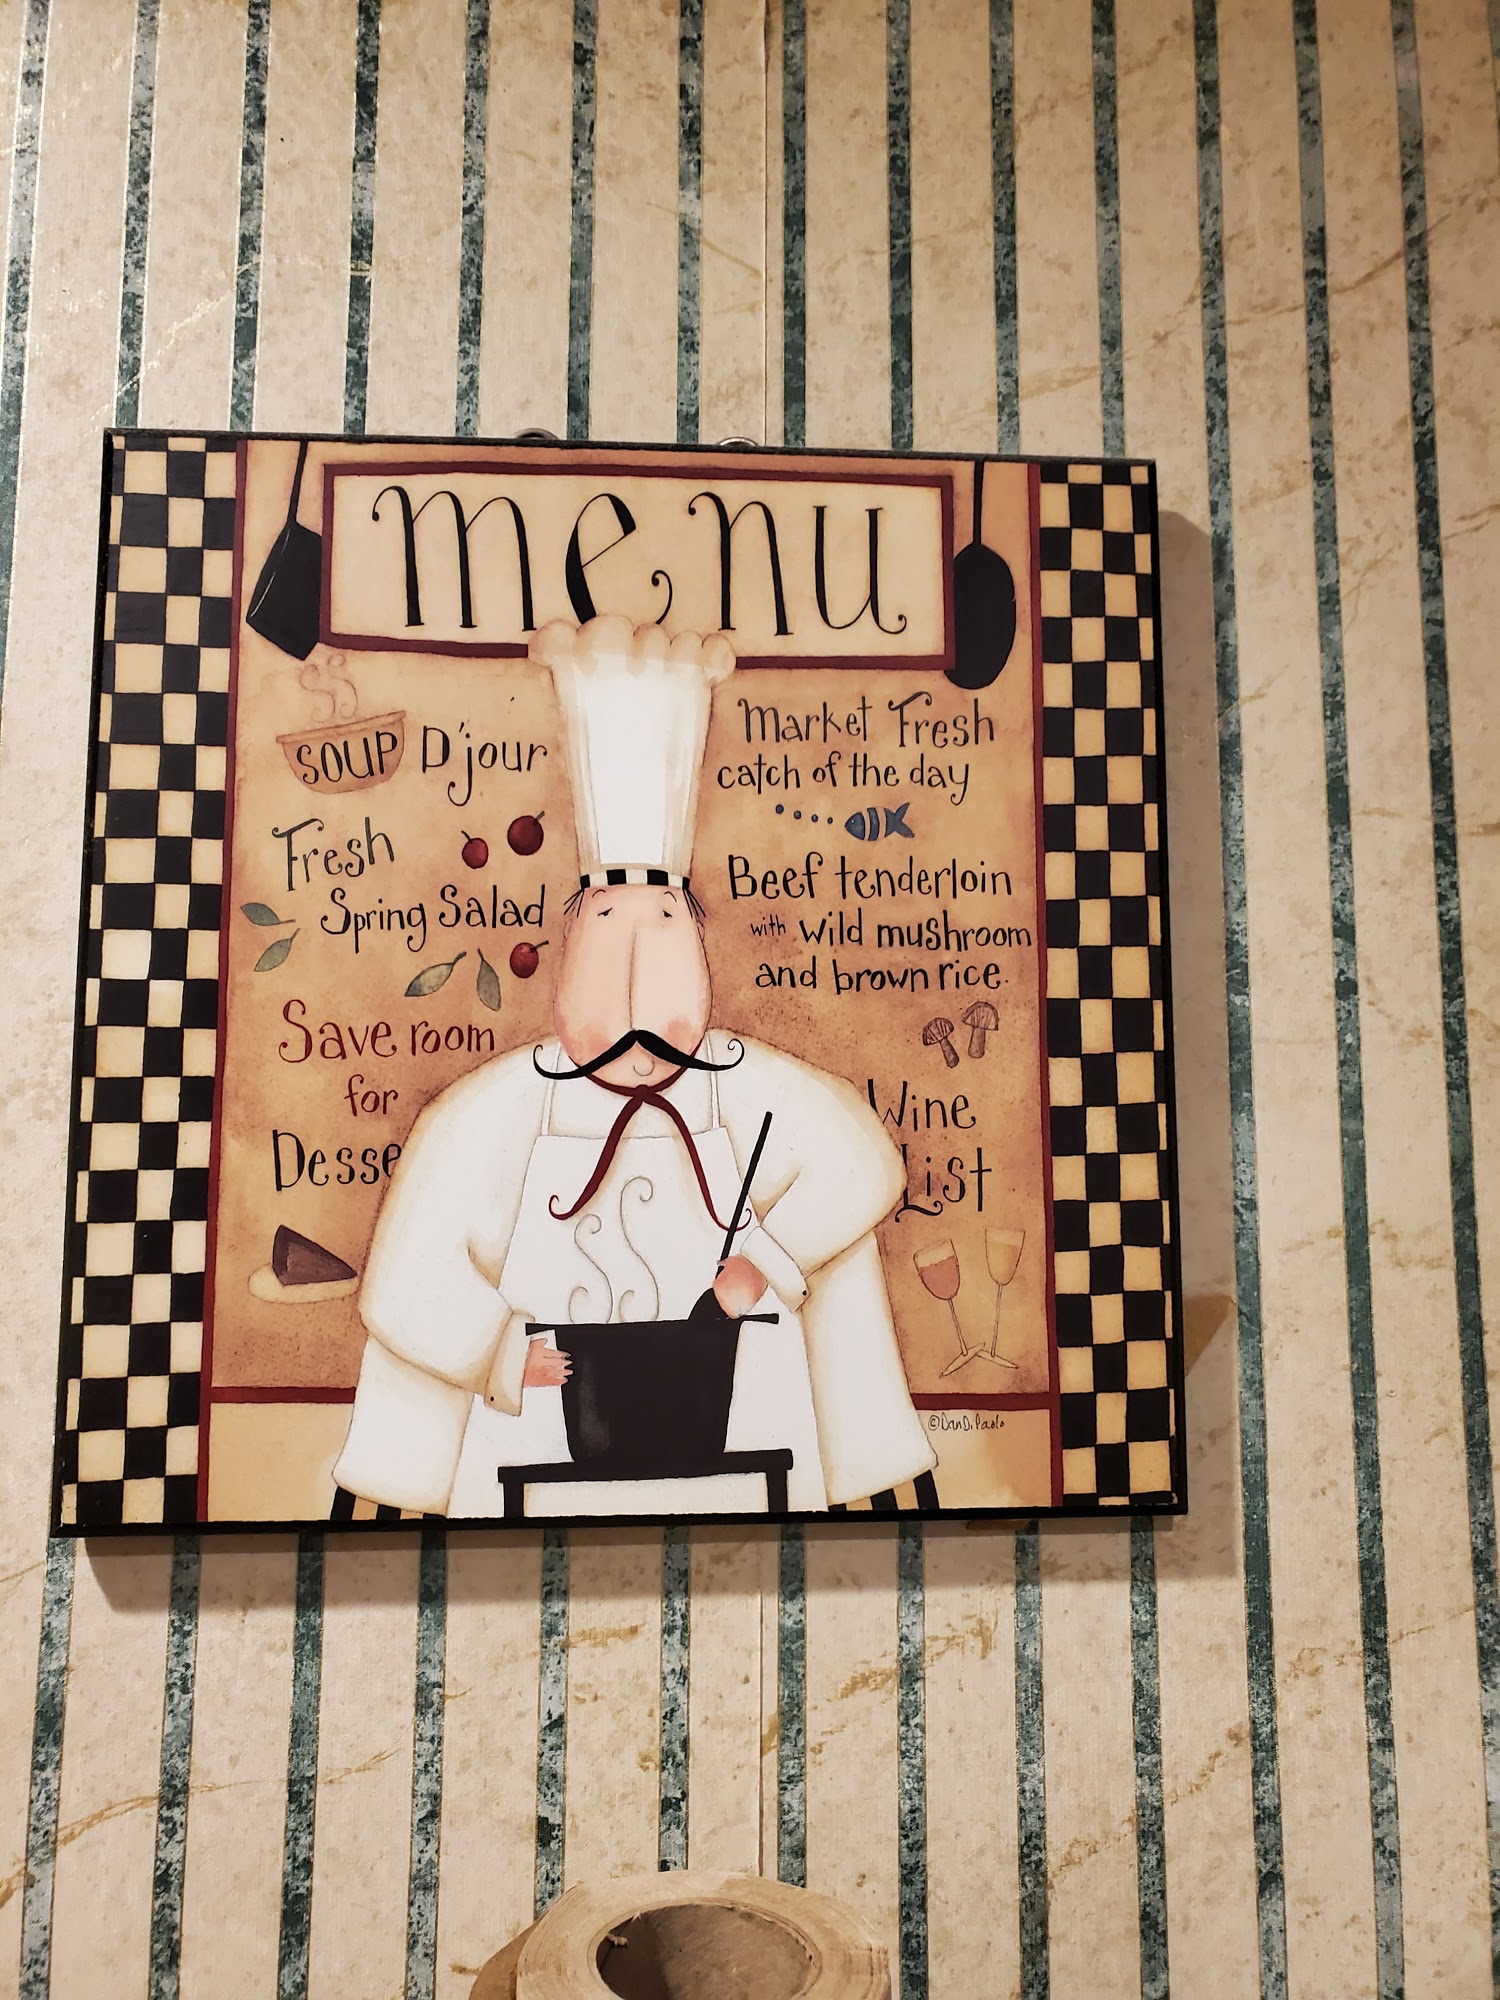 menu
SOUP D'jour
Fresh
Spring Salad
Save room
for
Desse
Market Fresh
catch of the day
Beef tenderloin
with wild mushroom
and brown rice.
Wine
List
©Dan DiPaolo